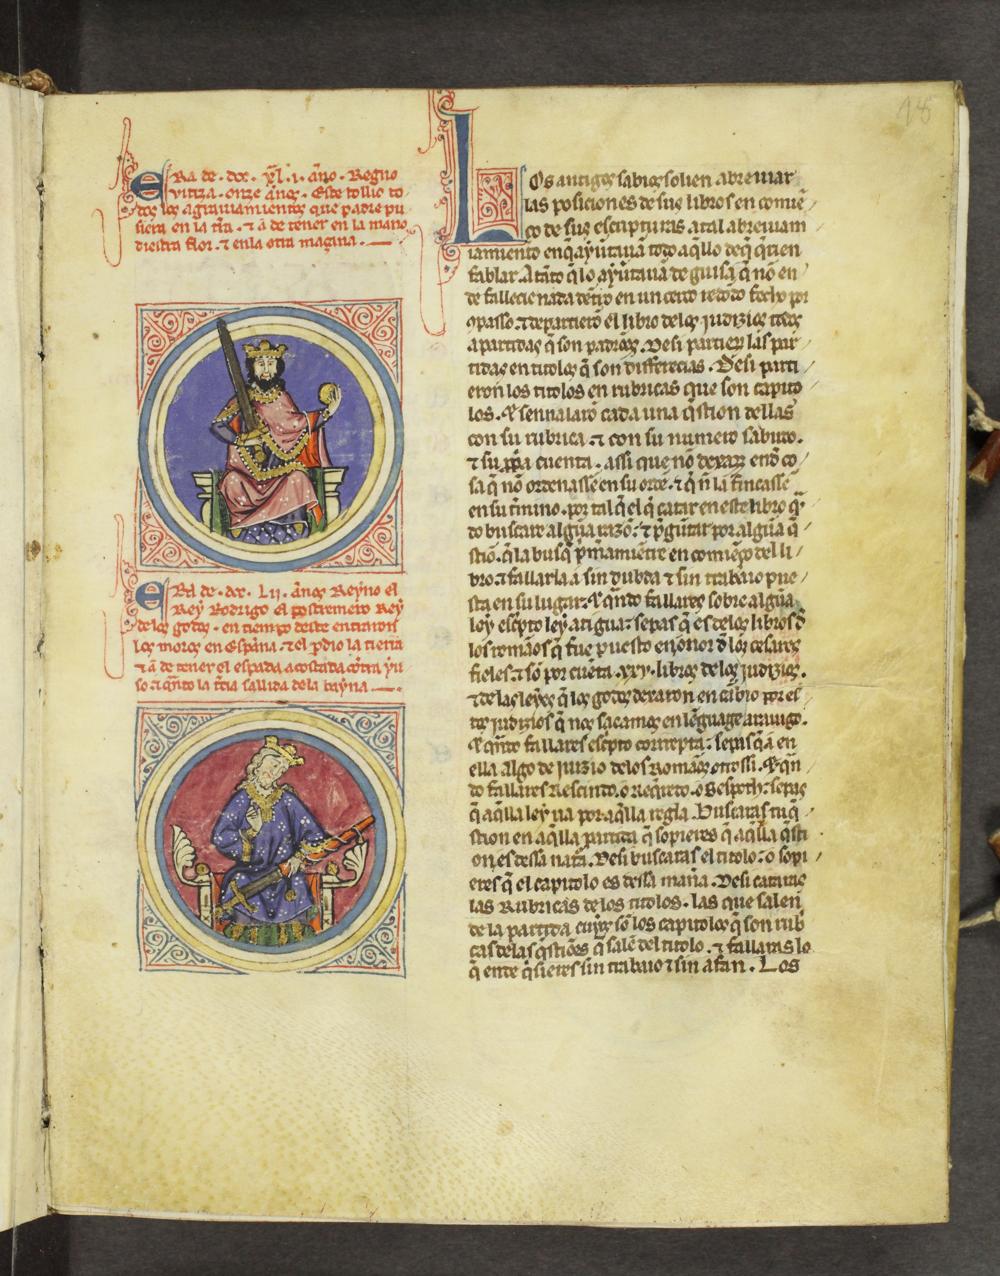 18
ERa de .dcc. xl.i. año. Regno
vitiza. onze años. Este tollio to
dos los agrauiamientos que padre pu
siera en la tr̄a. ⁊ a de tener en la mano
diestra flor. ⁊ en la otra maçana.
ERa de .dcc. Lii. años Reyno el
Rey Rodrigo el postremero Rey
de los godos. en tiempo deste entraron
los moros en España. ⁊ el p̄dio la tierra
⁊ a de tener el espada acostada cōtra yu
so. ⁊ q̄nto la t̄cia sallida dela bayna
LOs antigos sabios solien abreuiar
las posiciones de sus libros en comiē
ço de sus escripturas. a tal abreuiam
iamiento en q̄ ayūtauā todo aq̄llo de q̄ q̄rien
fablar. A tāto q̄ lo ayūtauā de guisa q̄ nō en
de falleciē nada dētro en un cerco redōdo fecho por
cōpasso. ⁊ departierō el libro de los judizios todos
a partidas q̄ son padrōs. Desi partierō las par
tidas en titolos q̄ son differēcias. Desi parti
eron los titolos en rubricas que son capito
los. ⁊ sennalarō cada una q̄stion dellas
con su rubrica. ⁊ con su numero sabuto.
⁊ su p̄p̄a cuenta. assi que nō dexarō endō co
sa q̄ nō ordenassē en su ordē. ⁊ q̄ n̄ la fincasse
en su t̄mino. por tal q̄ el q̄ catar en este libro q̄
do buscare algūa razō. ⁊ p̄gūtar por algūa q̄
stiō. q̄ la busq̄ p̄mamiētre en comiēço del li
bro. ⁊ fallarla a sin dubda ⁊ sin trabaio pue
sta en su lugar. ⁊ q̄ndo fallares sobre algūa
ley esc̄pto ley ātigua: sepas q̄ es delos libros d̄
los romāos q̄ fue puesto en onor d̄ los cesares
fieles. ⁊ sō por cuēta .xxv. libros delos judizios.
⁊ de las leyes q̄ los godos dexaron en cābio por es
tos judizios q̄ nos sacamos en lēguage arauigo.
⁊ q̄ndo fallares esc̄pto correpta: sepas q̄ a en
ella algo de juizio delos Romāos. otrossi. ⁊ q̄n
do fallares Rescindo. o Req̄reto. o Gespoth: sepas
q̄ aq̄lla ley ua por aq̄lla regla. Buscaras tu q̄
stion en aq̄lla partida q̄ sopieres q̄ aq̄lla q̄sti
on es dessa nat̄a. Desi buscaras el titolo. o sopi
eres q̄ el capitolo es dessa mañ̄a. Desi cataras
las Rubricas de los titolos. las que salen
de la partida cuyos sō los capitolos q̄ son rub
cas delas q̄stiōes q̄ salē del titolo. ⁊ fallaras lo
q̄ ende q̄sieres sin trabaio ⁊ sin afan. Los